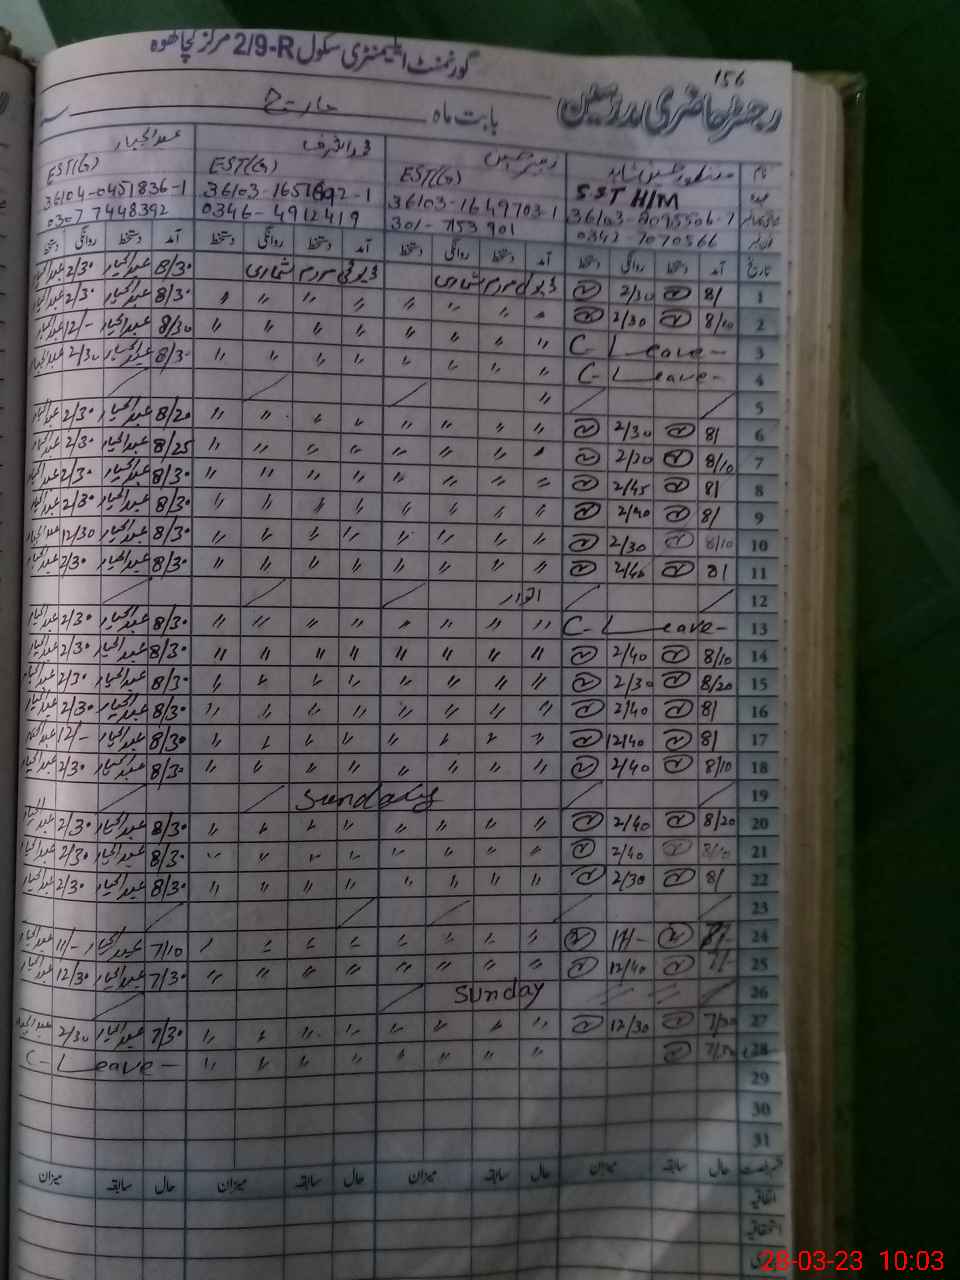 گورنمنٹ ایلیمنٹری سکول 2/9-R مرکز کچاکھوہ
156
رجسٹر حاضری مدرسین بابت ماہ مارچ
نام محمد اشرف عبدالجبار
عہدہ SST H/M EST(G) EST(G) EST(G)
36103-1649703-1 36104-0451836-1
0342-7070566 301-7153901 0346-4912419 0307 7448392
تاریخ آمد دستخط روانگی دستخط آمد دستخط روانگی دستخط آمد دستخط روانگی دستخط آمد دستخط روانگی دستخط
1 8/ 2/30 ڈیوٹی مردم شماری ڈیوٹی مردم شماری 8/30 عبدالجبار 2/30 عبدالجبار
2 8/10 2/30 " " " " " " " " 8/30 عبدالجبار 2/30 عبدالجبار
3 C-Leave- " " " " " " " " 8/30 عبدالجبار 12/- عبدالجبار
4 C-Leave- " " " " " " " " 8/30 عبدالجبار 2/30 عبدالجبار
5 "
6 8/ 2/30 " " " " " " " " 8/20 عبدالجبار 2/30 عبدالجبار
7 8/10 2/30 " " " " " " " " 8/25 عبدالجبار 2/30 عبدالجبار
8 8/ 2/45 " " " " " " " " 8/30 عبدالجبار 2/30 عبدالجبار
9 8/ 2/40 " " " " " " " " 8/30 عبدالجبار 2/30 عبدالجبار
10 8/10 2/30 " " " " " " " " 8/30 عبدالجبار 12/30 عبدالجبار
11 8/ 2/40 " " " " " " " " 8/30 عبدالجبار 2/30 عبدالجبار
12 اتوار
13 C-Leave- " " " " " " " " 8/30 عبدالجبار 2/30 عبدالجبار
14 8/10 2/40 " " " " " " " " 8/30 عبدالجبار 2/30 عبدالجبار
15 8/20 2/30 " " " " " " " " 8/30 عبدالجبار 2/30 عبدالجبار
16 8/ 2/40 " " " " " " " " 8/30 عبدالجبار 2/30 عبدالجبار
17 8/ 12/40 " " " " " " " " 8/30 عبدالجبار 12/- عبدالجبار
18 8/10 2/40 " " " " " " " " 8/30 عبدالجبار 2/30 عبدالجبار
19 Sunday
20 8/20 2/40 " " " " " " " " 8/30 عبدالجبار 2/30 عبدالجبار
21 8/10 2/40 " " " " " " " " 8/30 عبدالجبار 2/30 عبدالجبار
22 8/ 2/30 " " " " " " " " 8/30 عبدالجبار 2/30 عبدالجبار
23
24 11/- " " " " " " " " 7/10 عبدالجبار 11/- عبدالجبار
25 7/- 12/40 " " " " " " " " 7/30 عبدالجبار 12/30 عبدالجبار
26 Sunday
27 12/30 " " " " " " " " 7/30 عبدالجبار 2/30 عبدالجبار
28 " " " " " " " " C-Leave-
29
30
31
حال سابقہ میزان حال سابقہ میزان حال سابقہ میزان حال سابقہ میزان
اتفاقیہ
استحقاقیہ
28-03-23 10:03